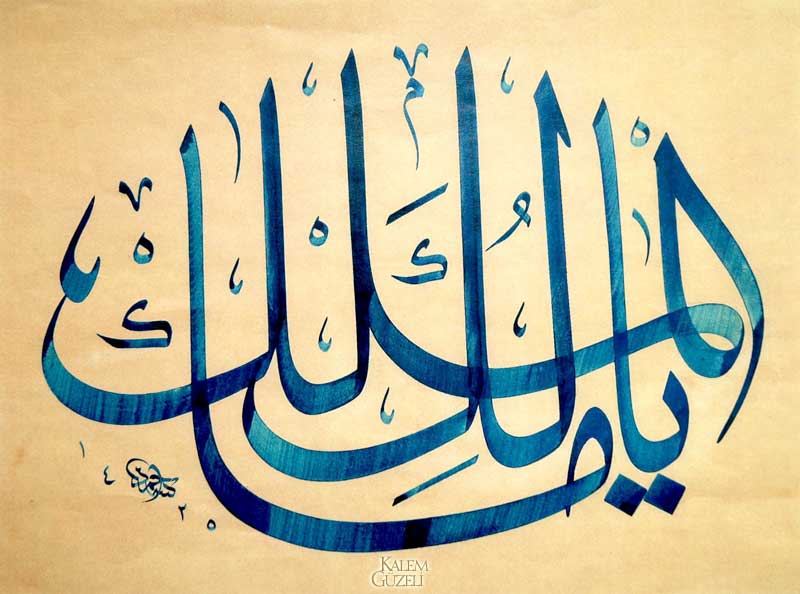 يا مالك الملك
١٤٢٥
KALEM
GÜZELİ